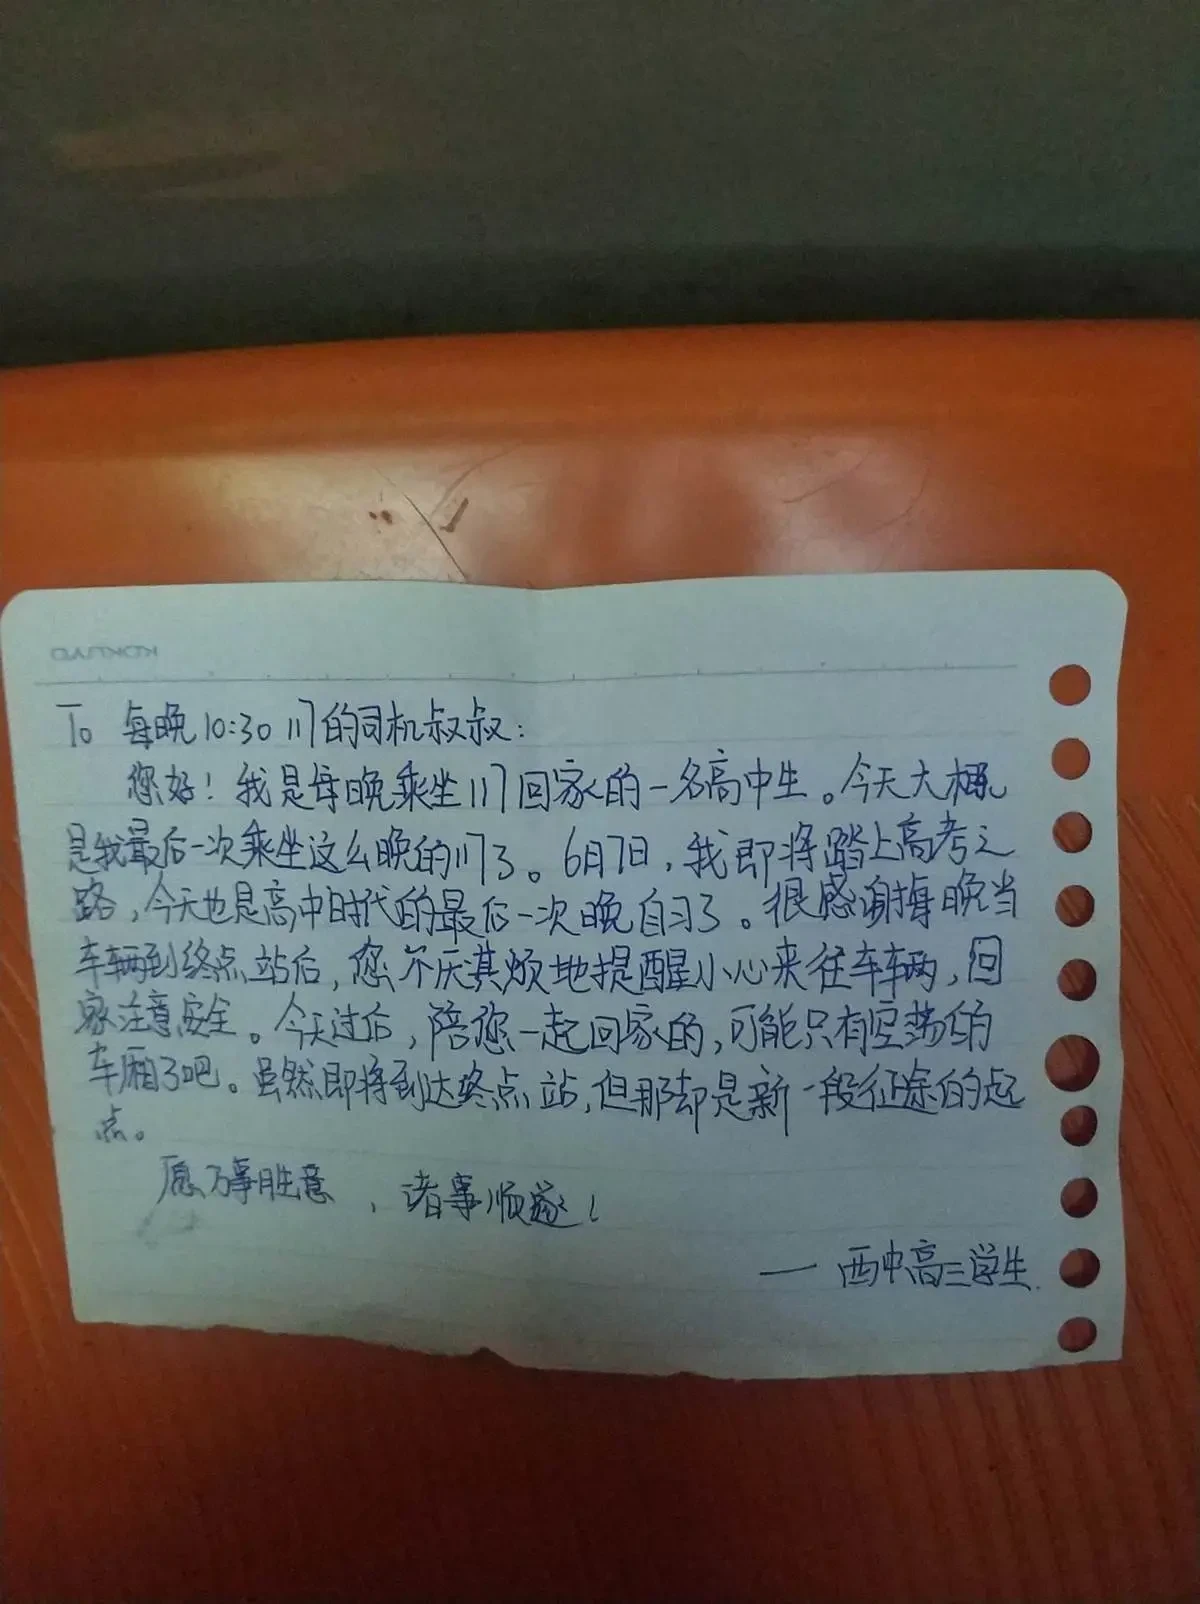 KOKUYO
To 每晚10:30 117的司机叔叔:
您好!我是每晚乘坐117回家的一名高中生。今天大概
是我最后一次乘坐这么晚的117了。6月7日,我即将踏上高考之
路,今天也是高中时代的最后一次晚自习了。很感谢每晚当
车辆到终点站后,您不厌其烦地提醒小心来往车辆,回
家注意安全。今天过后,陪您一起回家的,可能只有空荡的
车厢了吧。虽然即将到达终点站,但那却是新一段征途的起
点。
愿万事胜意,诸事顺遂!
——西中高三学生.